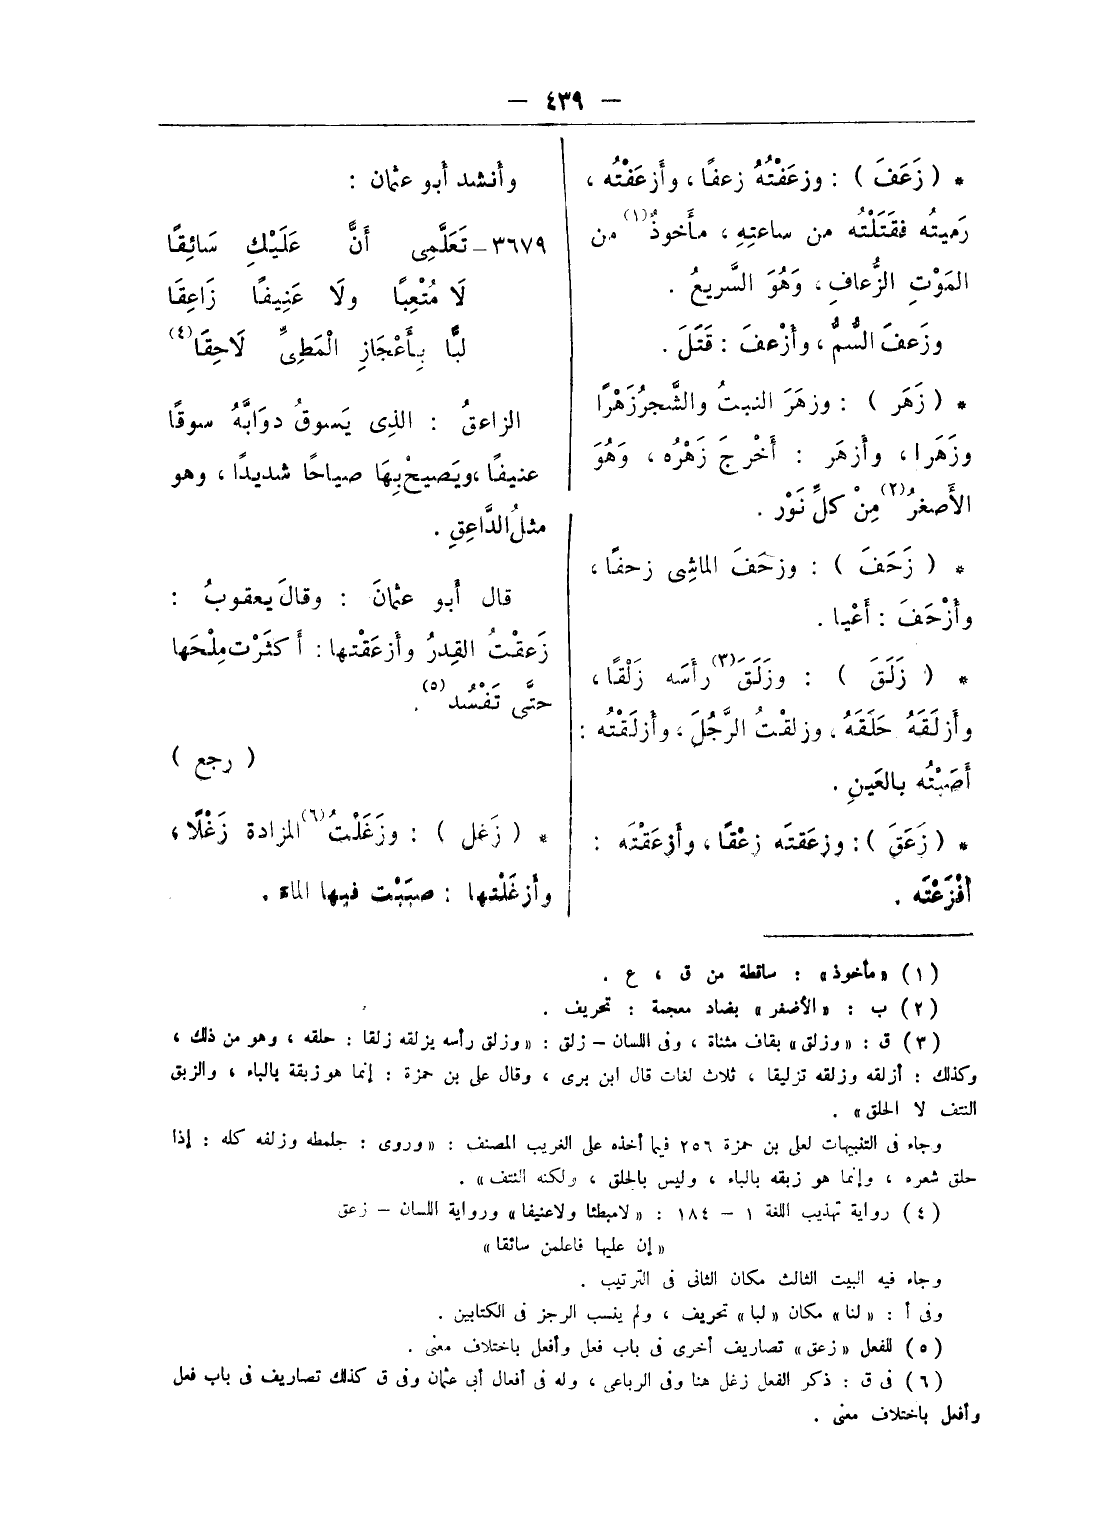 — ٤٣٩ —
* ( زَعَفَ ) : وزعَفْتُهُ زعفًا ، وأَزعَفْتُه ،
رَميتُه فقتَلْتُه من ساعتِهِ ، مأْخوذٌ(١) من
المَوْتِ الزُّعافِ ، وَهُوَ السَّريعُ .
وزَعفَ السُّمُّ ، وأَزْعفَ : قَتَلَ .
* ( زَهَر ) : وزهَرَ النبتُ والشَّجرُ زَهْرًا
وزَهَرا ، وأَزهَر : أَخْرجَ زَهْرُه ، وَهُوَ
الأَصغرُ(٢) مِنْ كلِّ نَوْر .
* ( زَحَفَ ) : وزحَفَ الماشِى زحفًا ،
وأَزْحَفَ : أَعْيا .
* ( زَلَقَ ) : وزَلَقَ(٣) رأسَه زَلْقًا ،
وأَزلَقَهُ حَلَقَهُ ، وزلقْتُ الرَّجُلَ ، وأَزلَقْتُه :
أَصَبْتُه بالعَينِ .
* ( زَعَقَ ) : وزعَقتَه زعْقًا ، وأَزعَقْتَه :
أَفْزَعْتَه .
وأَنشد أَبو عثمان :
٣٦٧٩ – تَعَلَّمِى أَنَّ عَلَيْكِ سَائِقًا
لَا مُتْعِبًا ولَا عَنِيفًا زَاعِقَا
لبًّا بِأَعْجَازِ الْمَطِىِّ لَاحِقَا(٤)
الزاعقُ : الذى يَسوقُ دوَابَّهُ سوقًا
عنيفًا ، ويَصيحْ بِهَا صياحًا شديدًا ، وهو
مثلُ الدَّاعِقِ .
قال أَبو عثمانَ : وقالَ يعقوبُ :
زَعقْتُ القِدرُ وأَزعَقْتها : أَكثَرْت مِلْحَها
حتَّى تَفْسُد(٥) .
( رجع )
* ( زَغل ) : وزَغَلْتُ(٦) المزادة زَغْلًا ،
وأَزغَلْتها : صبَبْت فيها الماءَ .
(١) «مأخوذ» : ساقطة من ق ، ع .
(٢) ب : «الأضفر» بضاد معجمة : تحريف .
(٣) ق : «وزلق» بقاف مثناة ، وفى اللسان – زلق : «وزلق رأسه يزلقه زلقا : حلقه ، وهو من ذلك ،
وكذلك : أزلقه وزلقه تزليقا ، ثلاث لغات قال ابن برى ، وقال على بن حمزة : إنما هو زبقة بالباء ، والزبق
النتف لا الحلق» .
وجاء فى التنبيهات لعلى بن حمزة ٢٥٦ فيما أخذه على الغريب المصنف : «وروى : جلمطه وزلفه كله : إذا
حلق شعره ، وإنما هو زبقه بالباء ، وليس بالحلق ، ولكنه النتف» .
(٤) رواية تهذيب اللغة ١ – ١٨٤ : «لامبطئا ولاعنيفا» ورواية اللسان – زعق
«إن عليها فاعلمن سائقا»
وجاء فيه البيت الثالث مكان الثانى فى الترتيب .
وفى أ : «لنا» مكان «لبا» تحريف ، ولم ينسب الرجز فى الكتابين .
(٥) للفعل «زعق» تصاريف أخرى فى باب فعل وأفعل باختلاف معنى .
(٦) فى ق : ذكر الفعل زغل هنا وفى الرباعى ، وله فى أفعال أبى عثمان وفى ق كذلك تصاريف فى باب فعل
وأفعل باختلاف معنى .